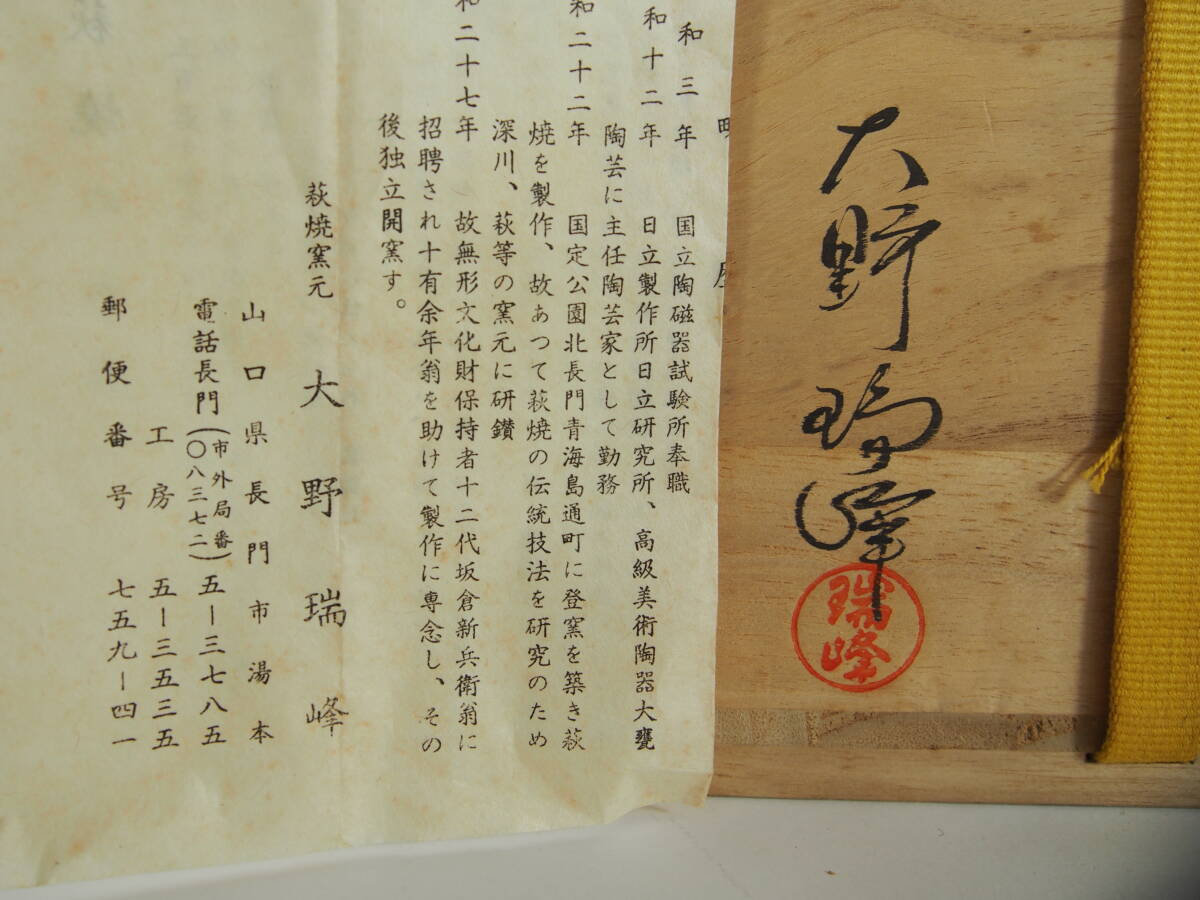 大野瑞峰
瑞峰
和三年 国立陶磁器試験所奉職
和十二年 日立製作所日立研究所、高級美術陶器大甕
陶芸に主任陶芸家として勤務
和二十二年 国定公園北長門青海島通町に登窯を築き萩
焼を製作、故あつて萩焼の伝統技法を研究のため
深川、萩等の窯元に研鑚
和二十七年 故無形文化財保持者十二代坂倉新兵衛翁に
招聘され十有余年翁を助けて製作に専念し、その
後独立開窯す。
萩焼窯元 大野瑞峰
山口県長門市湯本
電話長門(市外局番〇八三七二)五―三七八五
工房 五―三五三五
郵便番号 七五九―四一